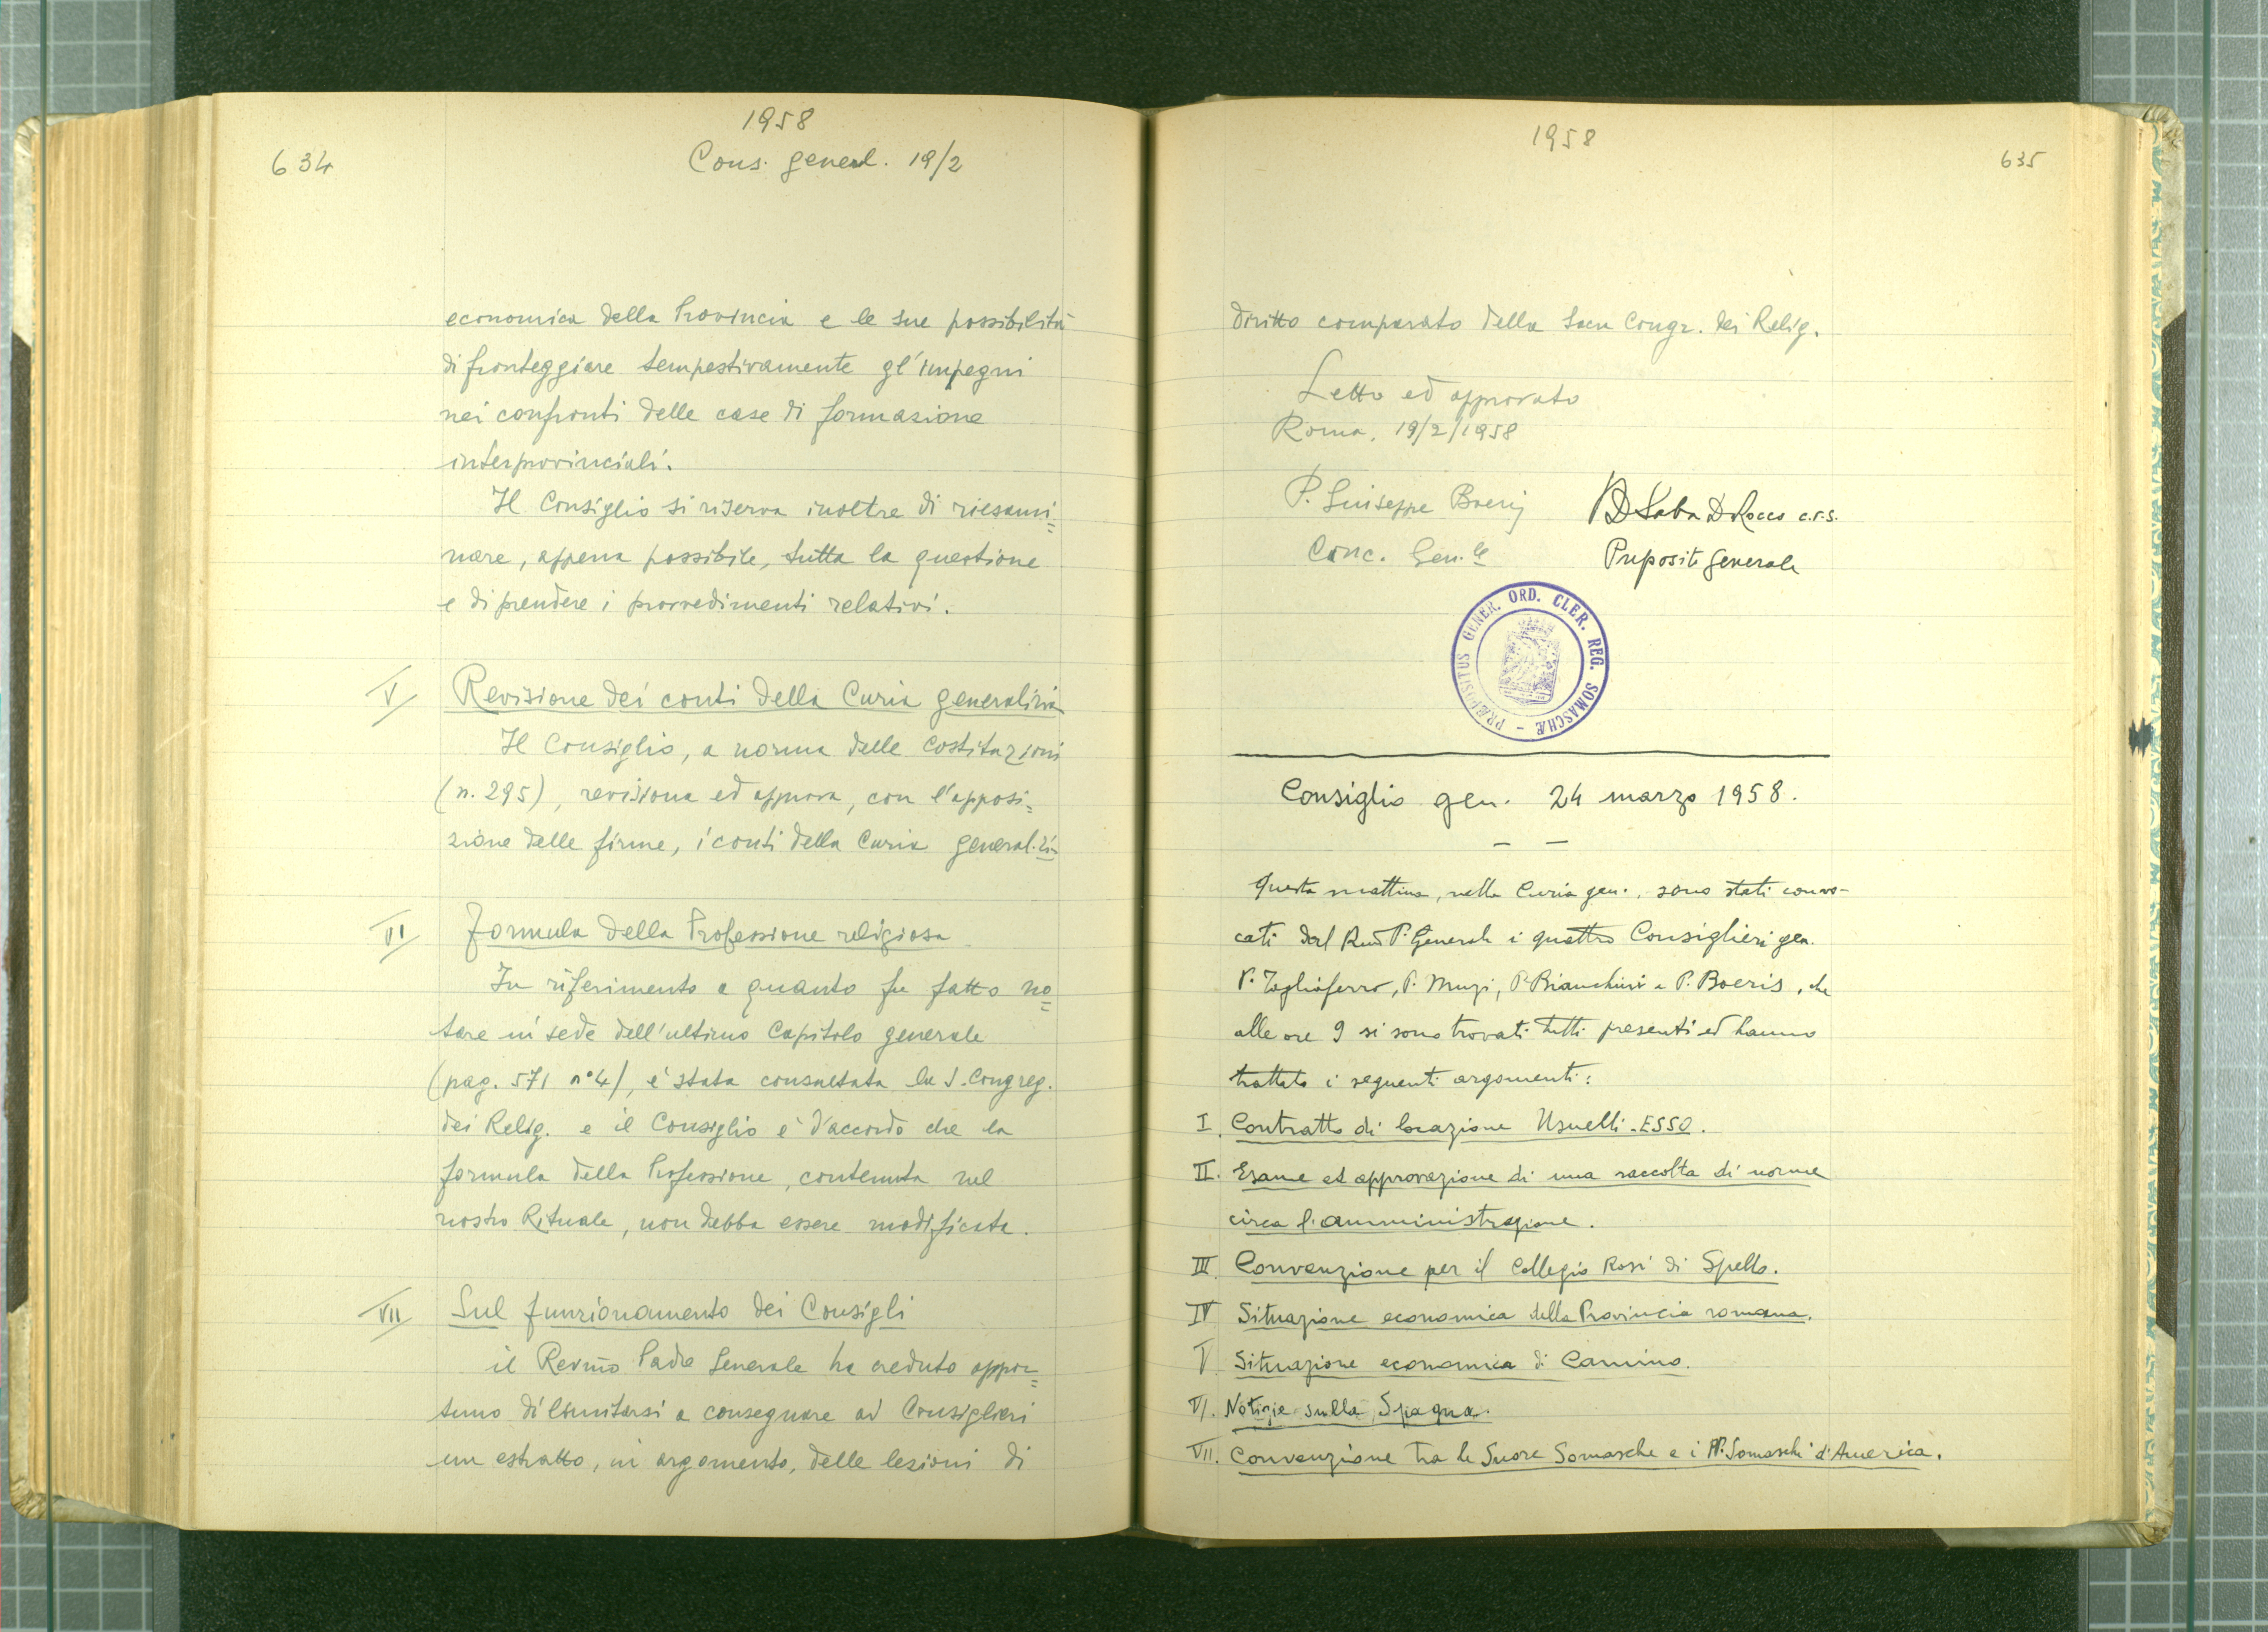 634
1958
Cons. general. 19/2
economica della Provincia e le sue possibilità
di fronteggiare tempestivamente gl'impegni
nei confronti delle case di formazione
interprovinciali.
Il Consiglio si riserva inoltre di riesami=
nare, appena possibile, tutta la questione
e di prendere i provvedimenti relativi.
V Revisione dei conti della Curia generalizia
Il Consiglio, a norma delle Costituzioni
(n. 295), revisiona ed approva, con l'apposi=
zione delle firme, i conti della Curia generalizia
VI Formula della Professione religiosa
In riferimento a quanto fu fatto no=
tare in sede dell'ultimo Capitolo generale
(pag. 571 n°4), è stata consultata la S. Congreg.
dei Relig. e il Consiglio è d'accordo che la
formula della Professione, contenuta nel
nostro Rituale, non debba essere modificata.
VII Sul funzionamento dei Consigli
il Rev.mo Padre Generale ha creduto oppor=
tuno di limitarsi a consegnare ai Consiglieri
un estratto, in argomento, delle lezioni di
1958
635
diritto comparato della Sacra Congr. dei Relig.
Letto ed approvato
Roma, 19/2/1958
P. Giuseppe Boeris
Canc. Gen.le
P. D. Saba De Rocco c.r.s.
Preposito Generale
PRÆPOSITUS GENER. ORD. CLER. REG. SOMASCHÆ
Consiglio gen. 24 marzo 1958.
Questa mattina, nella Curia gen., sono stati convo-
cati dal Rev.mo P. Generale i quattro Consiglieri gen.
P. Tagliaferro, P. Muzi, P. Bianchini e P. Boeris, che
alle ore 9 si sono trovati tutti presenti ed hanno
trattato i seguenti argomenti:
I. Contratto di locazione Usuelli-ESSO.
II. Esame ed approvazione di una raccolta di norme
circa l'amministrazione.
III. Convenzione per il Collegio Rosi di Spello.
IV Situazione economica della Provincia romana.
V Situazione economica di Camino.
VI. Notizie sulla Spagna.
VII. Convenzione tra le Suore Somasche e i PP. Somaschi d'America.